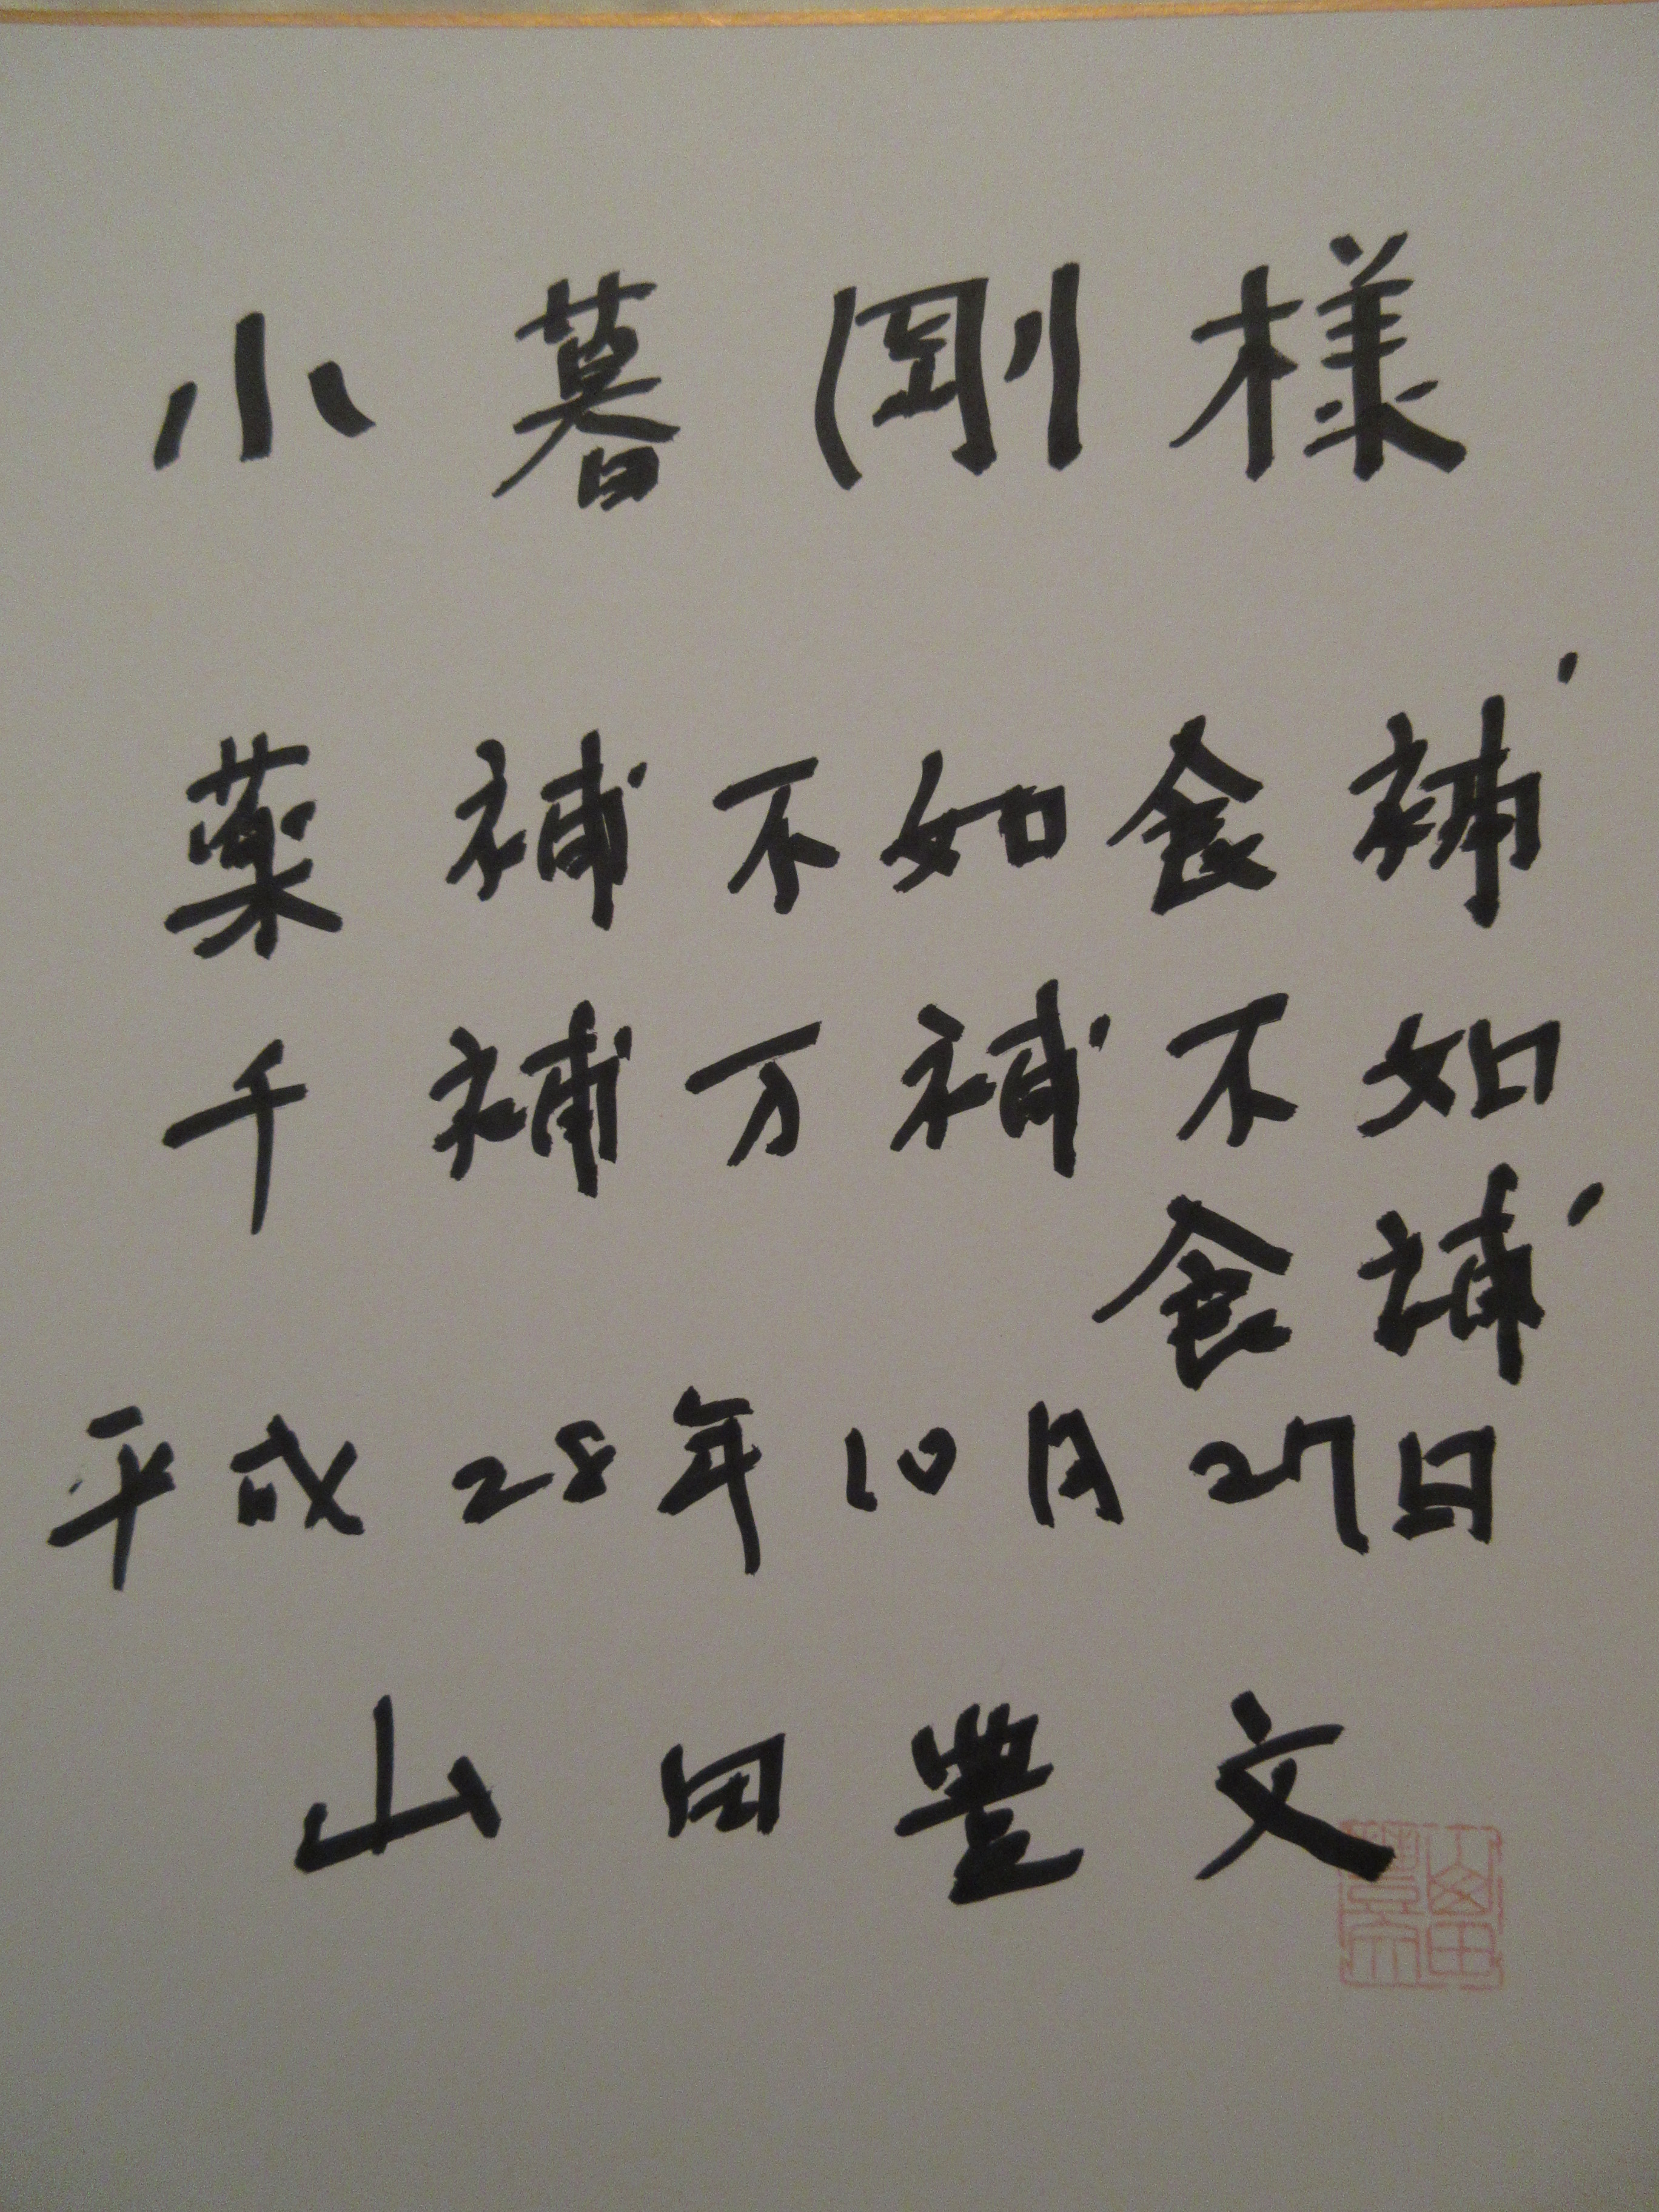 小暮剛様
薬補不如食補
千補万補不如
食補
平成28年10月27日
山田豊文
山田豊文